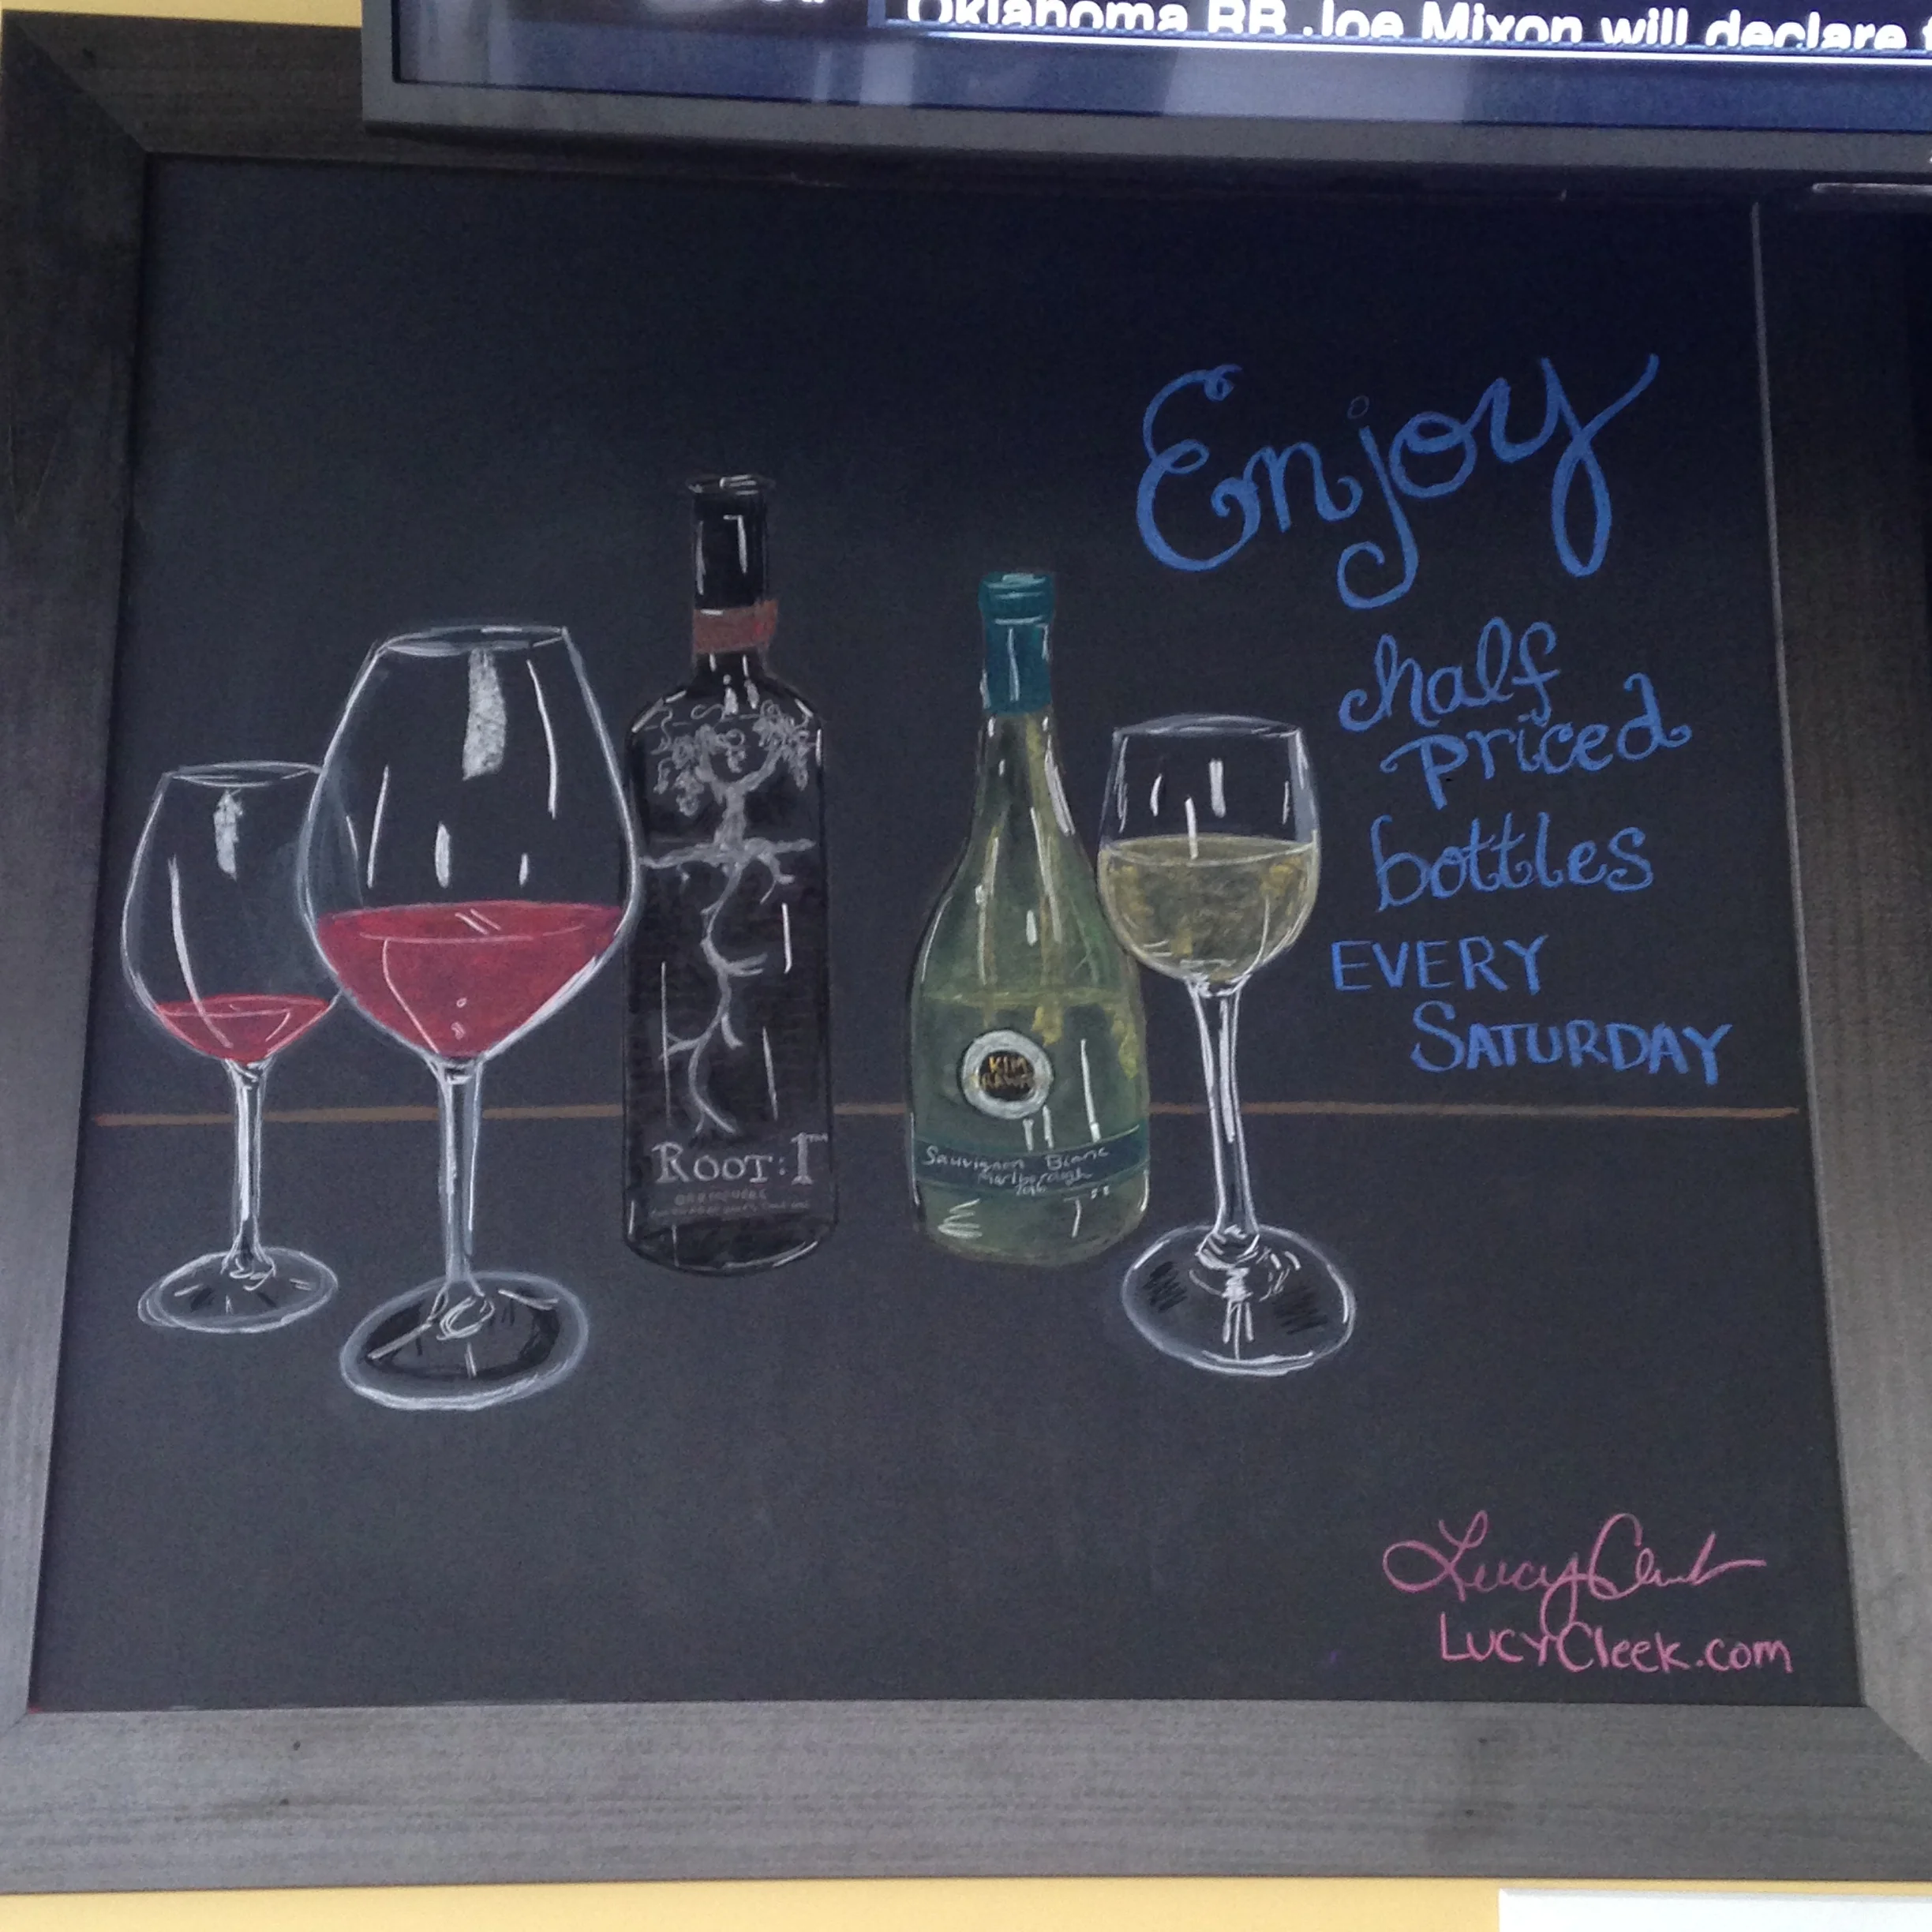 Oklahoma RB Joe Mixon will declare
Enjoy
half
priced
bottles
EVERY
SATURDAY
KIM
ROOT:1™
Sauvignon Blanc
Marlborough
2016
Lucy
LucyCleek.com